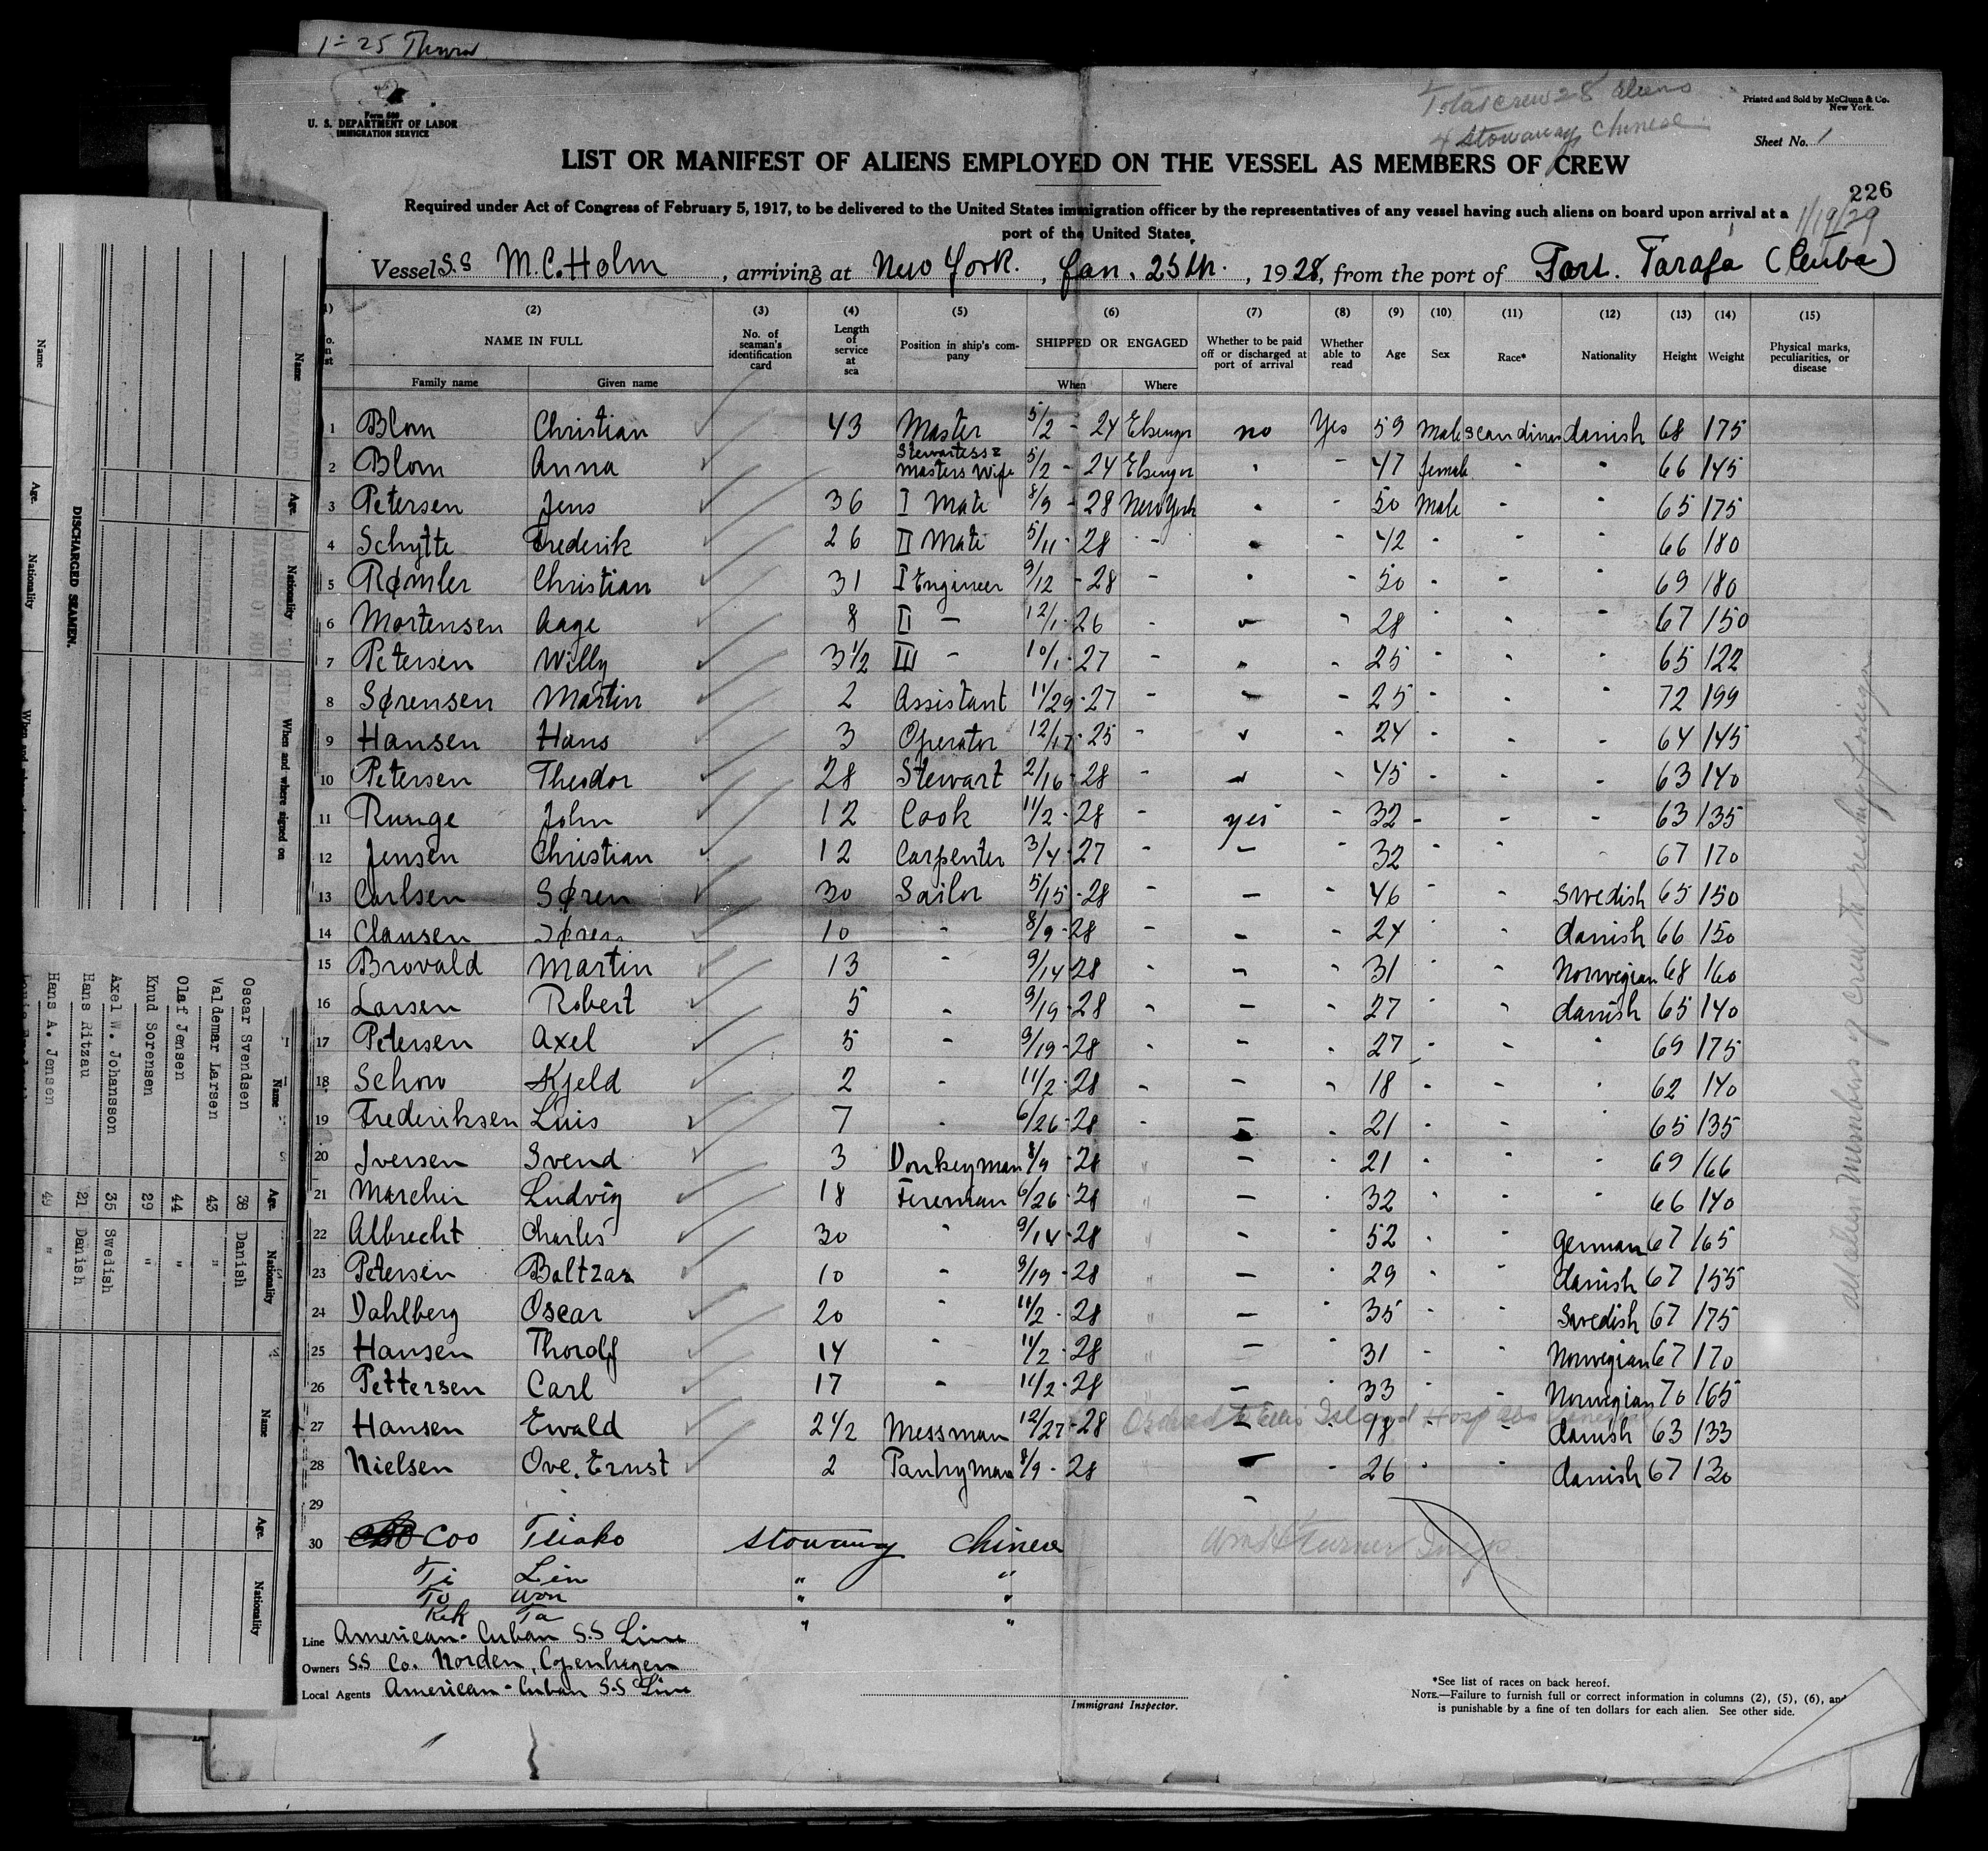 1 - 25
Form 680
U. S. DEPARTMENT OF LABOR
IMMIGRATION SERVICE
Total crew 28 aliens
4 stowaway Chinese
Printed and Sold by McClunn & Co.
New York.
Sheet No. 1
LIST OR MANIFEST OF ALIENS EMPLOYED ON THE VESSEL AS MEMBERS OF CREW
226
Required under Act of Congress of February 5, 1917, to be delivered to the United States immigration officer by the representatives of any vessel having such aliens on board upon arrival at a
port of the United States.
1/19/29
Vessel S.S M.C. Holm, arriving at New York., Jan. 25th., 1928, from the port of Port. Tarafa (Cuba)
(2) (3) (4) (5) (6) (7) (8) (9) (10) (11) (12) (13) (14) (15)
NAME IN FULL
Family name Given name
No. of seaman's identification card
Length of service at sea
Position in ship's company
SHIPPED OR ENGAGED
When Where
Whether to be paid off or discharged at port of arrival
Whether able to read
Age Sex Race* Nationality Height Weight
Physical marks, peculiarities, or disease
1 Blom Christian 43 Master 5/2 - 24 Elsingor no Yes 59 Male Scandinav danish 68 175
2 Blom Anna Stewartess & Masters Wife 5/2 - 24 Elsingor " - 47 female - " 66 145
3 Petersen Jens 36 I Mate 8/9 - 28 New York " - 50 Male - " 65 175
4 Schytte Frederik 26 II Mate 5/11 - 28 - - - 42 - - - 66 180
5 Rømler Christian 31 I Engineer 9/12 - 28 - - - 50 - - - 69 180
6 Mortensen Aage 8 II - 12/1 - 26 - - - 28 - - - 67 150
7 Petersen Willy 3 1/2 III - 10/1 - 27 - - - 25 - - - 65 122
8 Sørensen Martin 2 Assistant 11/29 - 27 - - - 25 - - - 72 199
9 Hansen Hans 3 Operator 12/17 - 25 - - - 24 - - - 64 145
10 Petersen Theodor 28 Stewart 2/16 - 28 - - - 45 - - - 63 140
11 Runge John 12 Cook 11/2 - 28 - yes - 32 - - - 63 135
12 Jensen Christian 12 Carpenter 3/4 - 27 - - - 32 - - - 67 170
13 Carlsen Søren 30 Sailor 5/15 - 28 - - - 46 - - Swedish 65 150
14 Clausen Søren 10 - 8/9 - 28 - - - 24 - - danish 66 150
15 Brovald Martin 13 - 9/14 - 28 - - - 31 - - Norwegian 68 160
16 Larsen Robert 5 - 9/19 - 28 - - - 27 - - danish 65 140
17 Petersen Axel 5 - 9/19 - 28 - - - 27 - - - 69 175
18 Schow Kjeld 2 - 11/2 - 28 - - - 18 - - - 62 140
19 Frederiksen Luis 7 - 6/26 - 28 - - - 21 - - - 65 135
20 Iversen Svend 3 Donkeyman 8/9 - 28 " - - 21 - - - 69 166
21 Marcher Ludvig 18 Fireman 6/26 - 28 " - - 32 - - - 66 140
22 Albrecht Charles 30 - 9/14 - 28 " - - 52 - - German 67 165
23 Petersen Baltzar 10 - 9/19 - 28 " - - 29 - - danish 67 155
24 Dahlberg Oscar 20 - 11/2 - 28 " - - 35 - - Swedish 67 175
25 Hansen Thorolf 14 - 11/2 - 28 " - - 31 - - Norwegian 67 170
26 Pettersen Carl 17 - 11/2 - 28 - - 33 - - Norwegian 70 165
27 Hansen Ewald 2 1/2 Messman 12/27 - 28 Ordered to Ellis Island Hosp - 18 - danish 63 133
28 Nielsen Ove. Ernst 2 Pantryman 8/9 - 28 " - - 26 - - danish 67 130
29
30 Coo Tsiako stowaway Chinese
Ti Lin " "
To Won " "
Kek Ta " "
Wm H Turner Insp.
all alien members of crew to reship foreign
Line American-Cuban S.S Line
Owners S.S Co. Norden, Copenhagen
Local Agents American-Cuban S.S Line
Immigrant Inspector.
*See list of races on back hereof.
NOTE.—Failure to furnish full or correct information in columns (2), (5), (6), and
is punishable by a fine of ten dollars for each alien. See other side.
DISCHARGED SEAMEN.
Name Age. Nationality When and where signed on
Name Age. Nationality
Oscar Svendsen 38 Danish
Valdemar Larsen 43 "
Olaf Jensen 44 "
Knud Sorensen 29 "
Axel W. Johansson 35 Swedish
Hans Ritzau 21 Danish
Hans A. Jensen 49 "
Name Age. Nationality